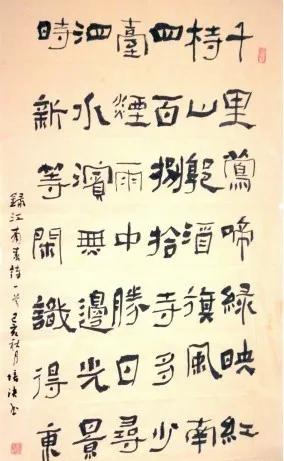 千里鶯啼緑映紅
村山郭酒旗風南
四百捌拾寺多少
臺煙雨中勝日尋
泗水濱無邊光景
時新等閑識得東
録江南春詩一首己亥秋月